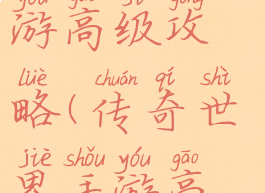 yóu gāo jí gōng
游高级攻
lüè chuán qí shì
略(传奇世
jiè shǒu yóu gāo
界手游高